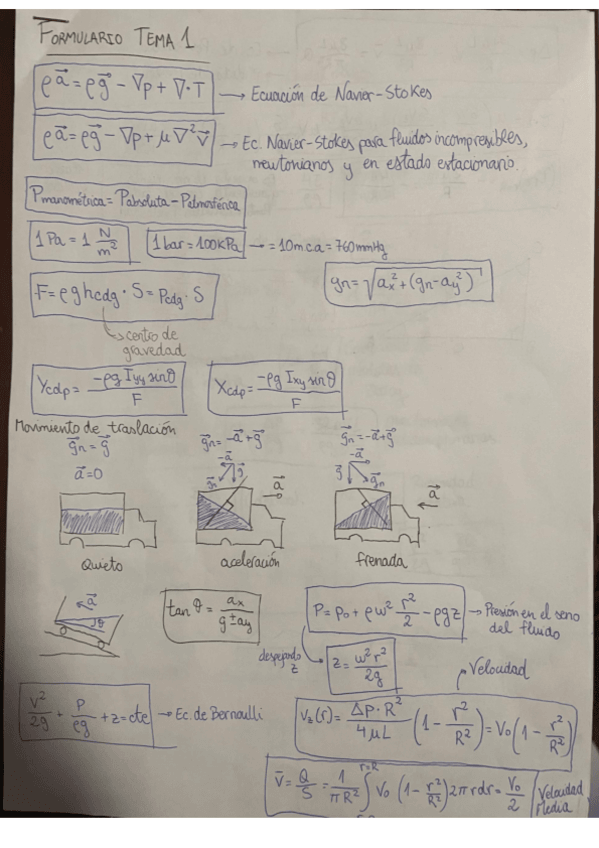 FORMULARIO TEMA 1
ρa⃗ = ρg⃗ − ∇p + ∇·T → Ecuación de Navier-Stokes
ρa⃗ = ρg⃗ − ∇p + μ∇²v⃗ → Ec. Navier-Stokes para fluidos incompresibles,
newtonianos y en estado estacionario.
Pmanométrica = Pabsoluta − Patmosférica
1 Pa = 1 N/m² 1 bar = 100 kPa → = 10 m.c.a = 760 mmHg
gn = √(ax² + (gn − ay²))
F = ρghcdg · S = Pcdg · S
centro de
gravedad
Ycdp = −ρg Iyy sinθ / F Xcdp = −ρg Ixy sinθ / F
Movimiento de traslación
g⃗n = g⃗ g⃗n = −a⃗ + g⃗ g⃗n = −a⃗ + g⃗
a⃗ = 0 −a⃗ g⃗n g⃗ a⃗ −a⃗ g⃗ g⃗n a⃗
Quieto aceleración frenada
a⃗ θ
tan θ = ax / (g ± ay)
P = p₀ + ρω² r²/2 − ρgz → Presión en el seno
del fluido
despejando
z
z = ω²r² / 2g
Velocidad
v²/2g + P/ρg + z = cte → Ec. de Bernoulli
Vz(r) = ΔP·R² / 4μL (1 − r²/R²) = V₀ (1 − r²/R²)
V̄ = Q/S = 1/πR² ∫ r=R V₀ (1 − r²/R²) 2πrdr = V₀/2
Velocidad
Media